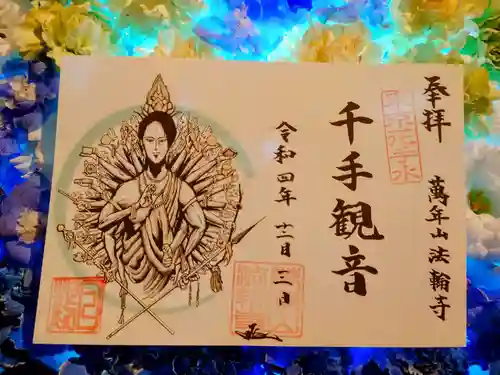 奉拝
萬年山法輪寺
千手観音
令和四年十二月十二日